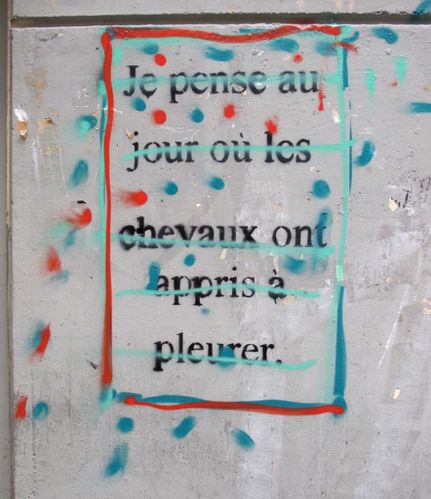 Je pense au
jour où les
chevaux ont
appris à
pleurer.